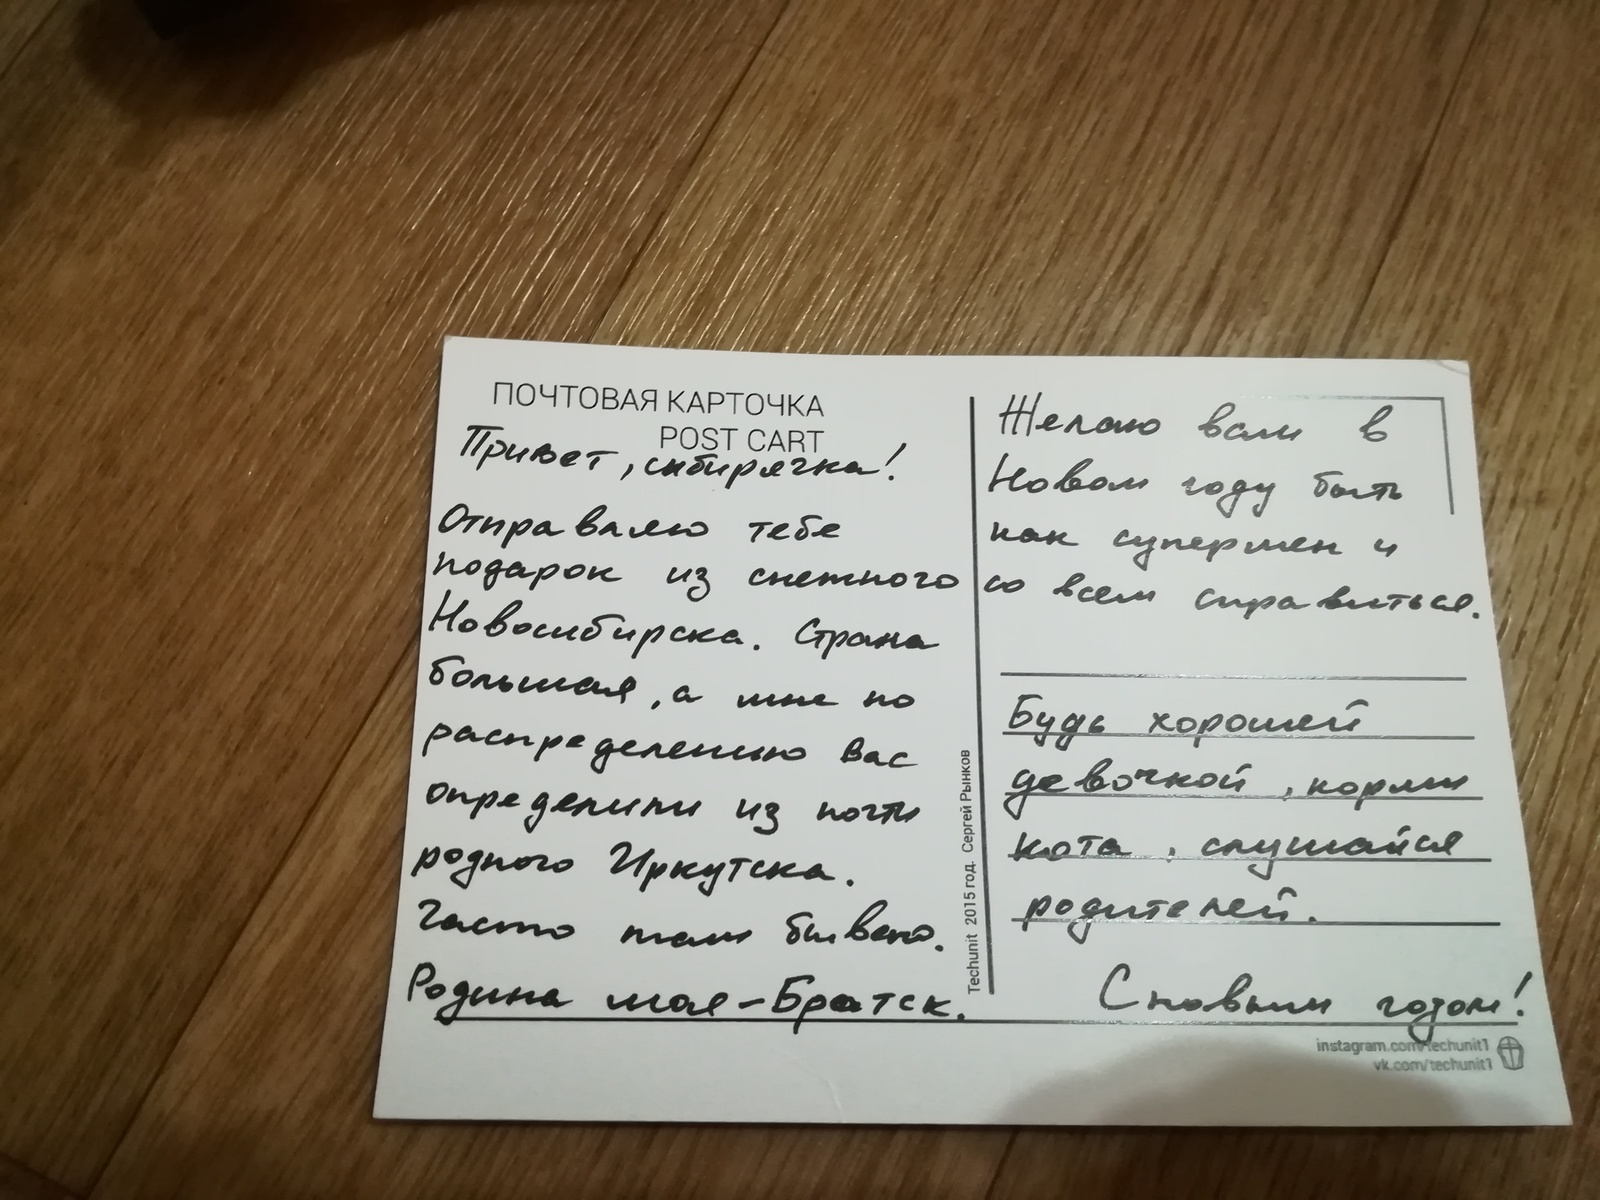 ПОЧТОВАЯ КАРТОЧКА
POST CART
Привет, сибирячка!
Отправляю тебе
подарок из снежного
Новосибирска. Страна
большая, а мне по
распределению вас
определили из почти
родного Иркутска.
Часто там бываю.
Родина моя-Братск.
Techunit 2015 год. Сергей Рынков
Желаю вам в
Новом году быть
как супермен и
со всем справиться.
Будь хорошей
девочкой, корми
кота, слушайся
родителей.
С новым годом!
instagram.com/techunit1
vk.com/techunit1